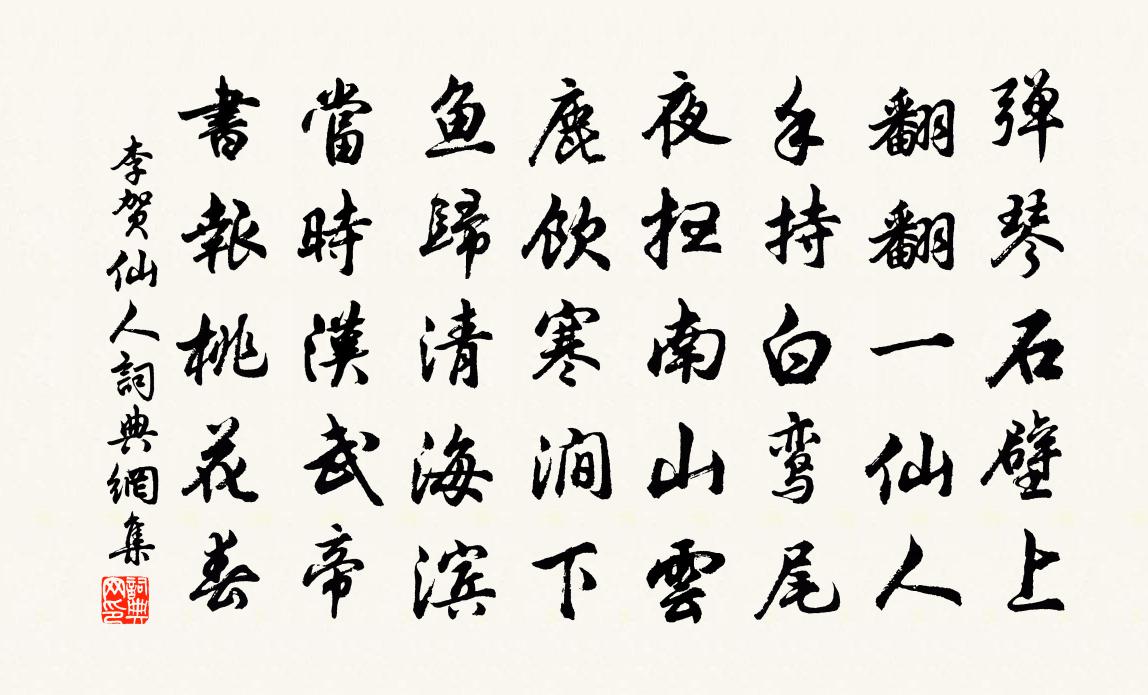 弹琴石壁上
翻翻一仙人
手持白鸾尾
夜扫南山雲
鹿饮寒涧下
鱼歸清海滨
當時漢武帝
書報桃花春
李贺仙人詞典網集
詞典网印